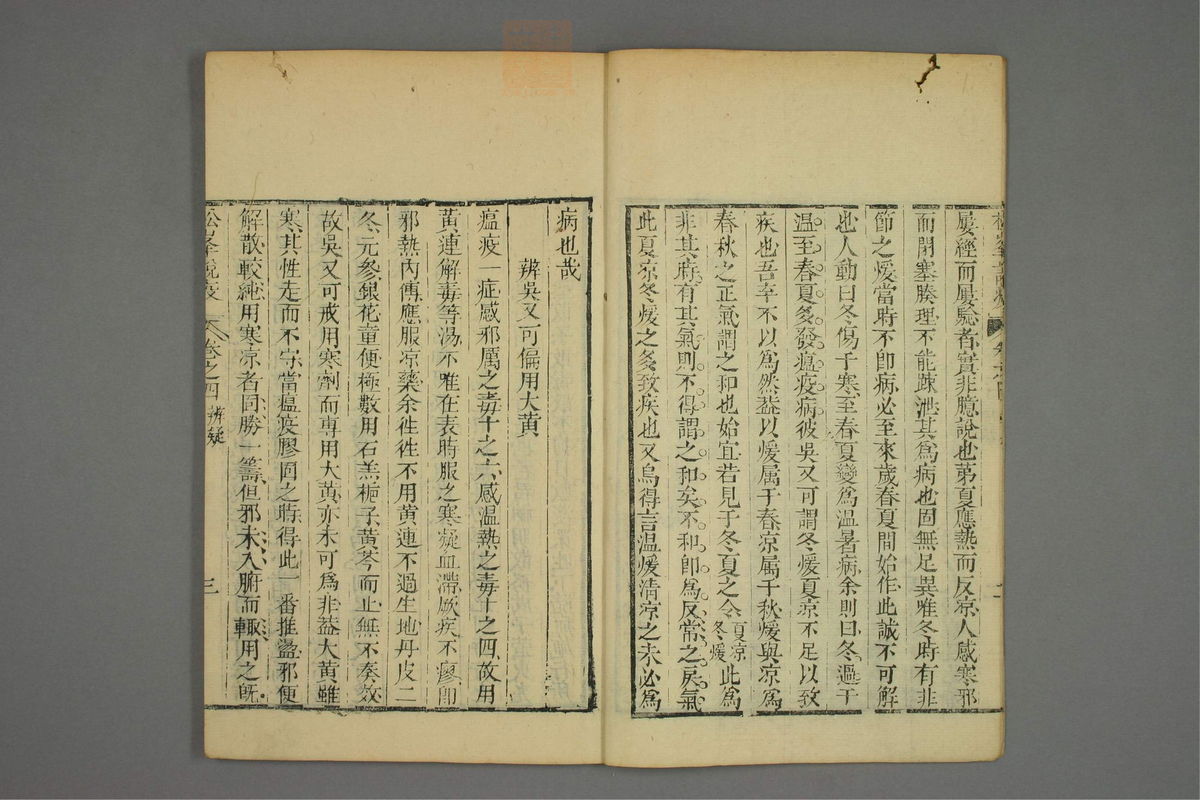 屢經而屢驗者實非臆說也第夏應熱而反凉人感寒邪
而閉塞腠理不能疎泄其爲病也固無足異唯冬時有非
節之煖當時不卽病必至來歲春夏間始作此誠不可解
也人動曰冬傷于寒至春夏變爲溫暑病余則曰冬過于
溫至春夏多發瘟疫病彼吳又可謂冬煖夏凉不足以致
疾也吾卒不以爲然葢以煖属于春凉属于秋煖與凉爲
春秋之正氣謂之和也始宜若見于冬夏之令夏凉冬煖此爲
非其時有其氣則不得謂之和矣不和卽爲反常之戾氣
此夏凉冬煖之多致疾也又烏得言溫煖清凉之未必爲
病也哉
辨吳又可偏用大黃
瘟疫一症感邪厲之毒十之六感温熱之毒十之四故用
黃連解毒等湯不唯在表時服之寒凝血滯厥疾不瘳卽
邪熱內傳應服凉藥余徃徃不用黄連不過生地丹皮二
冬元參銀花童便極數用石羔梔子黃芩而止無不奏效
故吳又可戒用寒劑而專用大黃亦未可爲非葢大黃雖
寒其性走而不守當瘟疫膠固之時得此一番推盪邪便
解散較純用寒凉者固勝一籌但邪未入腑而輙用之旣
松峯說疫
卷之四
辨疑
三